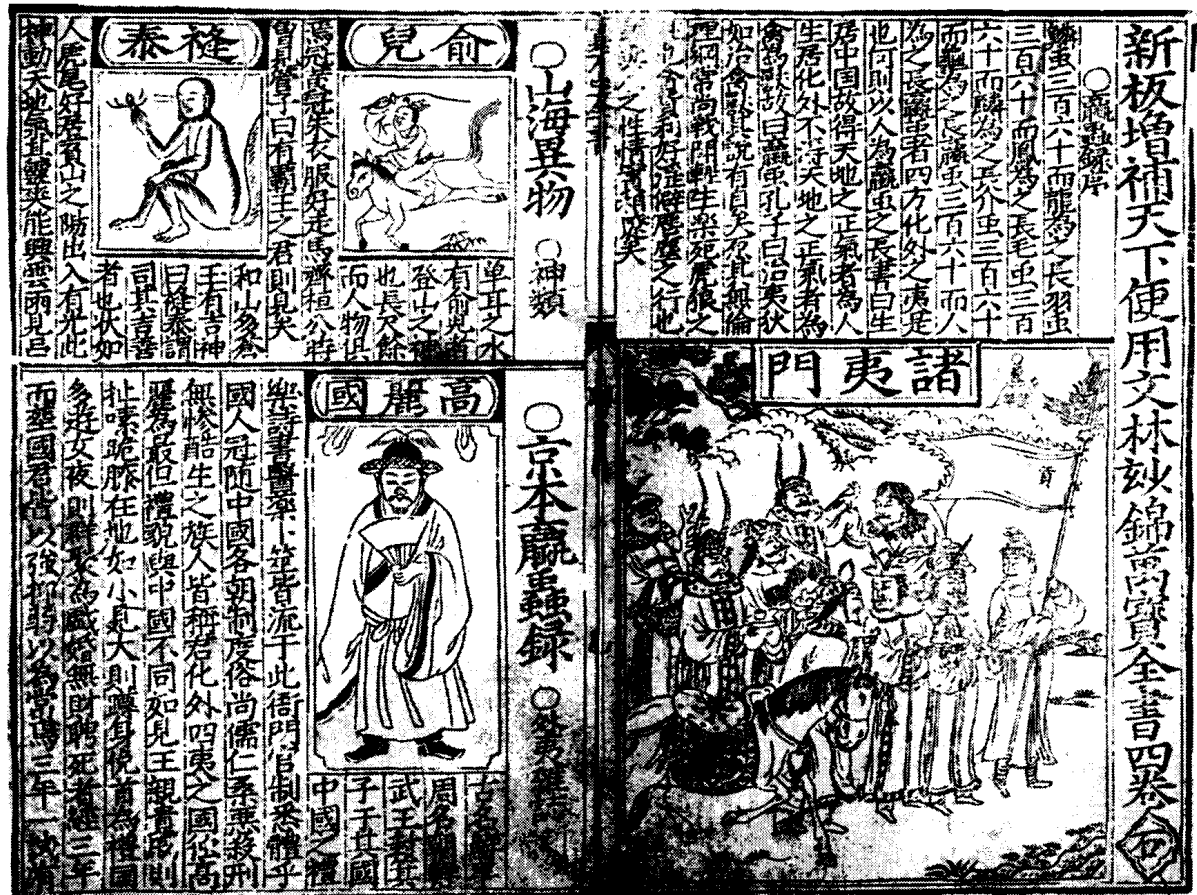 新板增補天下便用文林玅錦萬寶全書四卷
○蠃蟲錄序
鱗虫三百六十而龍為之長羽虫
三百六十而鳳為之長毛虫三百
六十而麟為之長介虫三百六十
而龜為之長蠃虫三百六十而人
為之長蠃虫者四方化外之夷是
也何則以人為蠃虫之長書曰生
居中国故得天地之正氣者為人
生居化外不得天地之正氣者為
禽為獸故曰蠃虫孔子曰治夷狄
如治禽獸其說有自矣右其無倫
理綱常尚戰鬥輕生樂死虎狼之
利好淫
之行也
之性情
矣
諸夷門
貢
○山海異物
○神類
俞兒
單耳之水
有俞兒者
登山之神
也長尺餘
而人物俱
焉冠黃冠朱衣服好走馬齊桓公時
曾見管子曰有覇王之君則見矣
䄵泰
和山多蒼
玉有吉神
曰䄵泰謂
司其吉善
者也状如
人虎尾好居萯山之陽出入有光此
神動天地氣其靈爽能興雲雨見呂
○京本蠃蟲錄
○外夷雜
高麗國
古名鮮
周名
武王封箕
子于其國
中國之禮
樂詩書醫藥卜筮皆流于此衙門官制悉體乎
國人冠随中國各朝制度俗尚儒仁柔無殺刑
無慘酷生之族人皆稱君化外四夷之國惟高
麗為最但禮貌與中國不同如見王親貴戚則
扯嗉跪膝在地如小見大則蹲身俛首為禮國
多遊女夜則群聚為戲婚無財聘死者經三年
而塟國君皆以強抑弱以為常事三年一